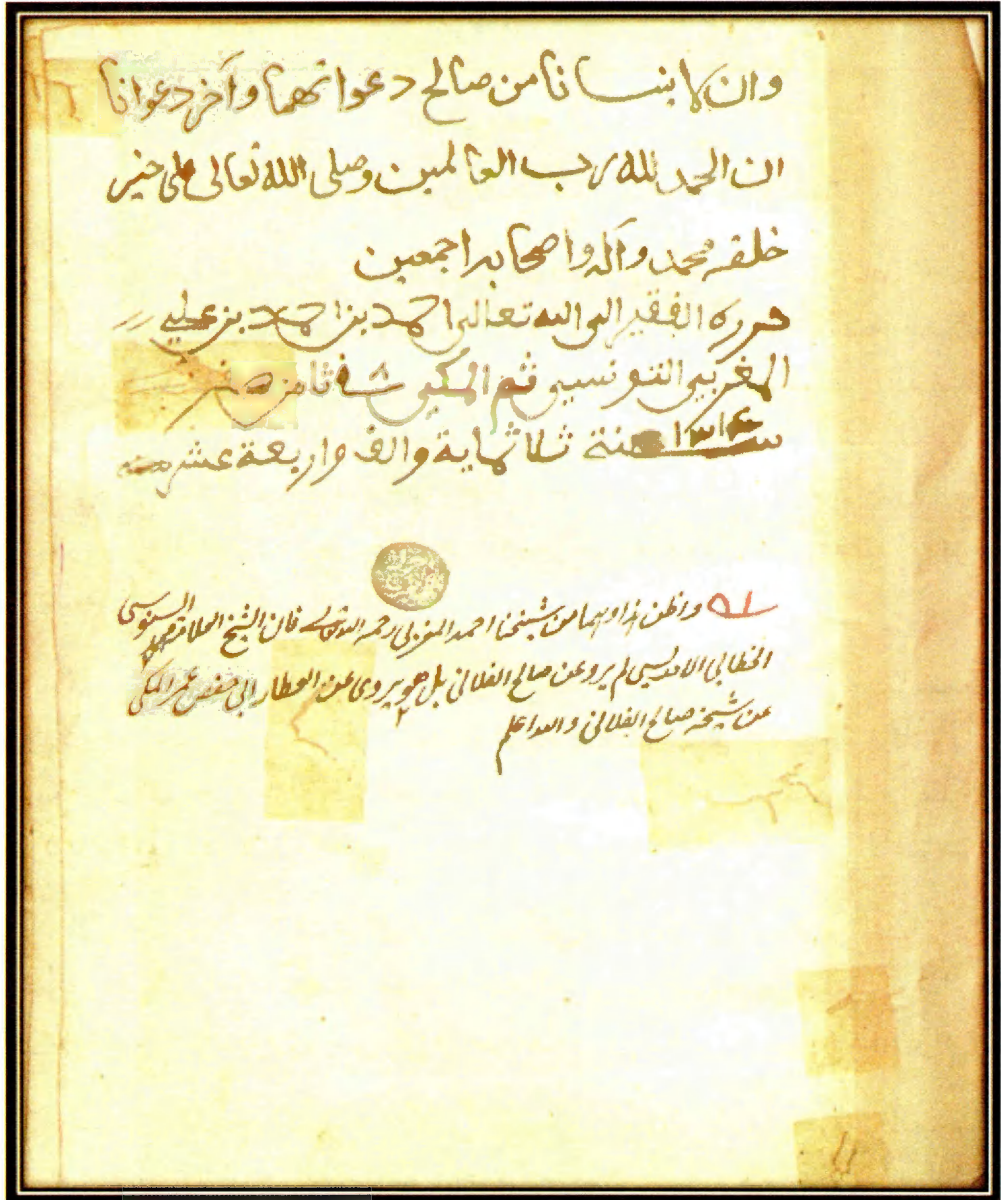 وان لا ينسانا من صالح دعواتهما وآخر دعوانا
ان الحمد لله رب العالمين وصلى الله تعالى على خير
خلقه محمد وآله واصحابه اجمعين
حرره الفقير الى الله تعالى احمد بن احمد بن علي
المغربي التونسي ثم المكي في ثامن صفر
سنة ١٣١٤ ثلاثماية والف واربعة عشر
واظن هذا وهما من شيخنا احمد المغربي رحمه الله تعالى فان الشيخ العلامة محمد السنوسي
الخطابي الادريسي لم يرو عن صالح الفلاني بل هو يروى عن العطار ابي حفص عمر المكي
عن شيخه صالح الفلاني والله اعلم